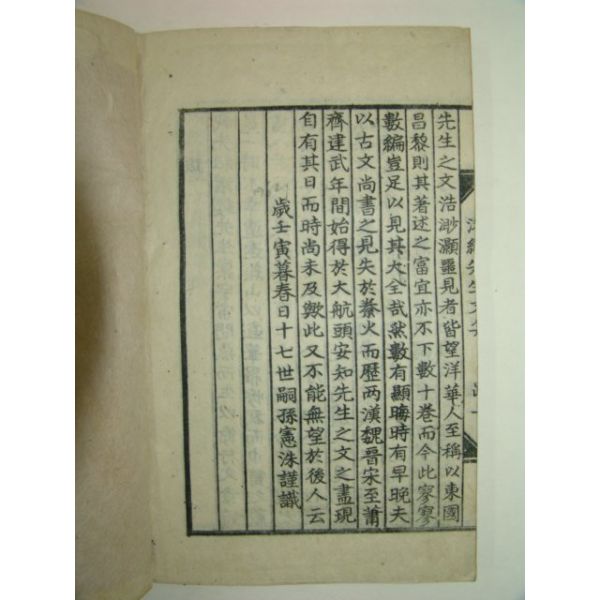 先生之文浩渺灝噩見者皆望洋華人至稱以東國
昌黎則其著述之富宜亦不下數十卷而今此寥寥
數編豈足以見其大全哉然數有顯晦時有早晚夫
以古文尚書之見失於秦火而歷两漢魏晉宋至蕭
齊建武年間始得於大航頭安知先生之文之盡現
自有其日而時尚未及歟此又不能無望於後人云
歲壬寅暮春日十七世嗣孫憲洙謹識